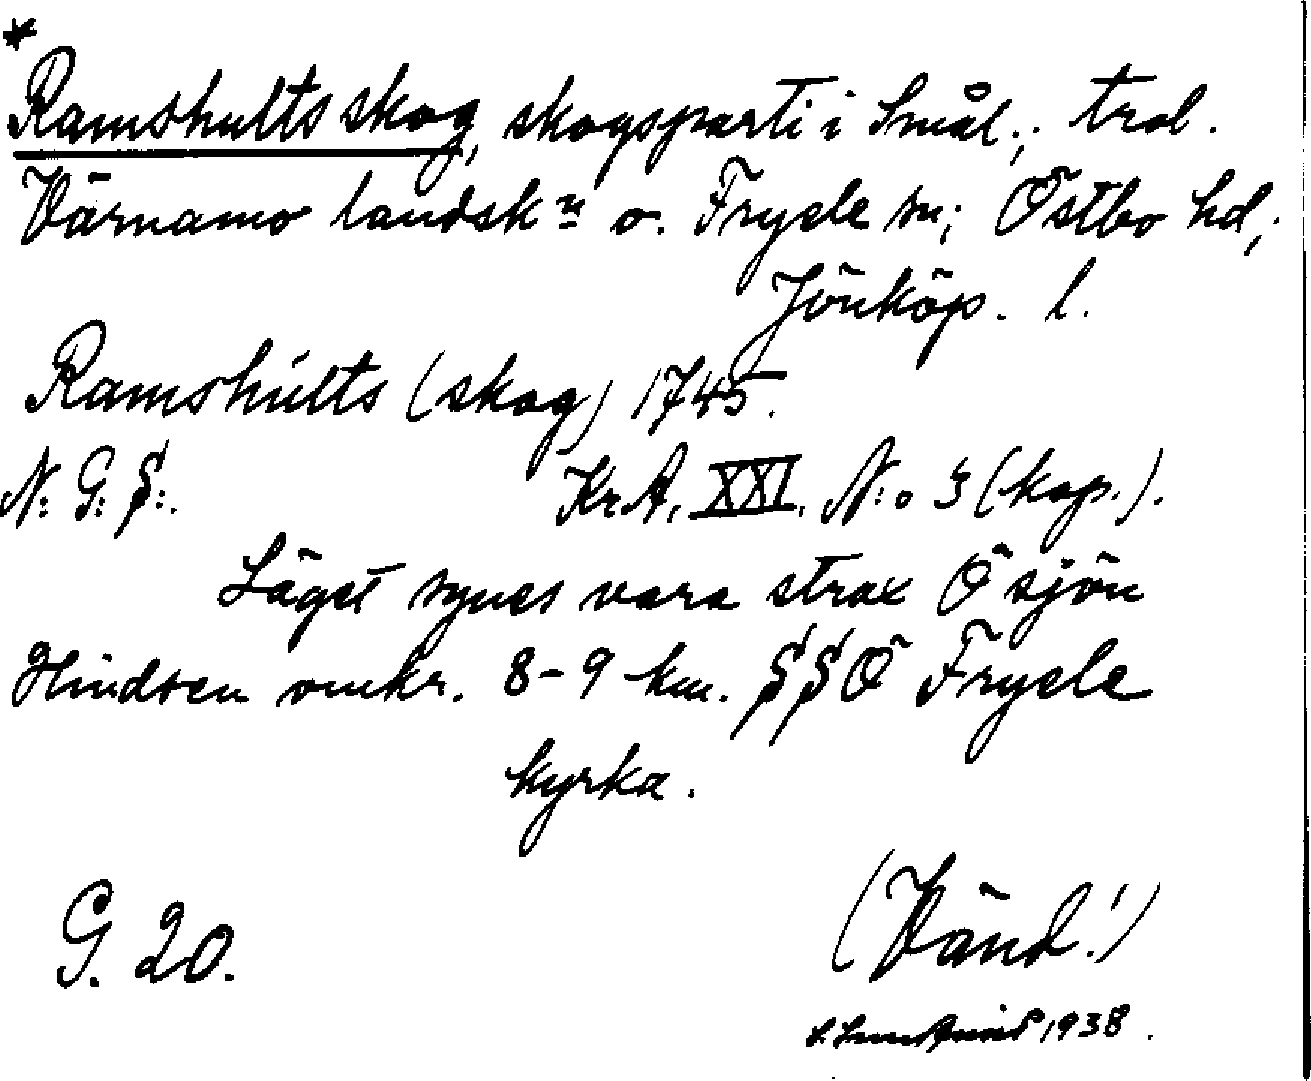 *
Ramshults skog, skogsparti i Smål.; trol.
Värnamo landskn o. Fryele sn; Östbo hd,;
Jönköp. l.
Ramshults (skog) 1745.
N: G: S:.
Kr.A. XXI. N:o 3 (kop.).
Läget synes vara strax Ö sjön
Hindsen omkr. 8-9 km. SSÖ Fryele
kyrka.
G. 20.
(Vänd!)
1938.